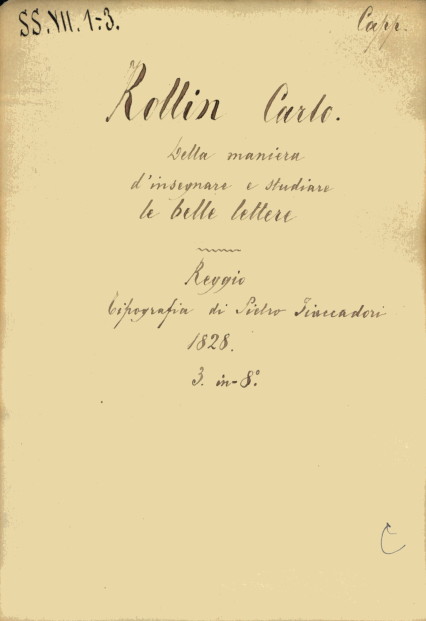 SS.VII.1-3.
Capp.
Rollin Carlo.
Della maniera
d'insegnare e studiare
le belle lettere
Reggio
Tipografia di Pietro Fiaccadori
1828.
3. in-8°.
C